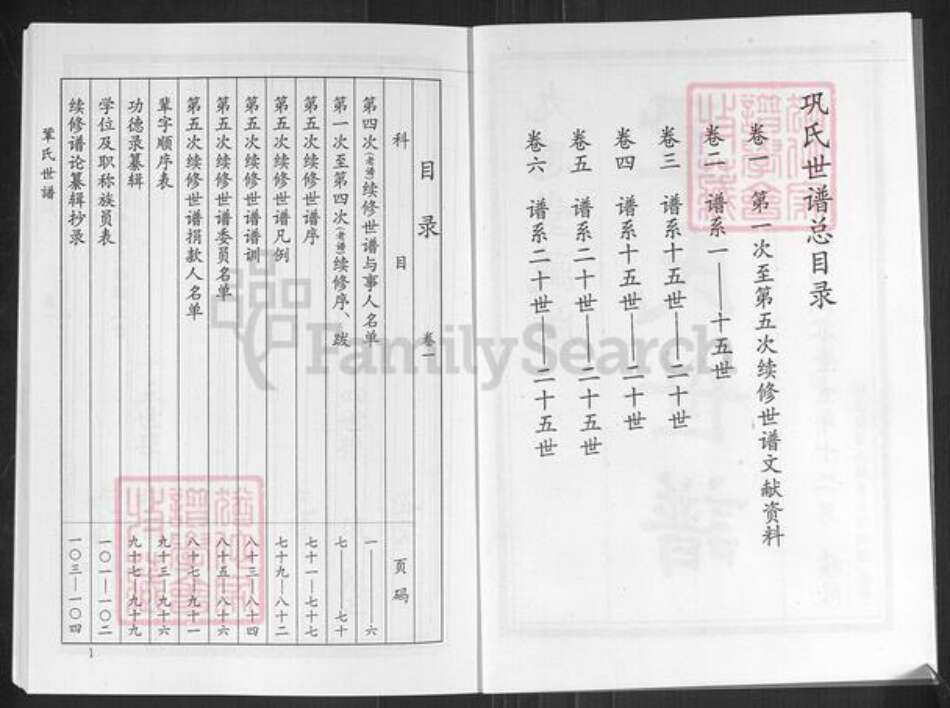 巩氏世谱总目录
卷一 第一次至第五次续修世谱文献资料
卷二 谱系一——十五世
卷三 谱系十五世——二十世
卷四 谱系十五世——二十世
卷五 谱系二十世——二十五世
卷六 谱系二十世——二十五世
目录 卷一
科目 页码
第四次(老谱)续修世谱与事人名单 一——六
第一次至第四次(老谱)续修序、跋 七——七十
第五次续修世谱序 七十一—七十七
第五次续修世谱凡例 七十九—八十二
第五次续修世谱谱训 八十三—八十四
第五次续修世谱委员名单 八十五—八十六
第五次续修世谱捐款人名单 八十七—九十一
辈字顺序表 九十三—九十六
功德录纂辑 九十七—九十九
学位及职称族员表 一〇一—一〇二
续修谱论纂辑抄录 一〇三—一〇四
鞏氏世谱
1
FamilySearch